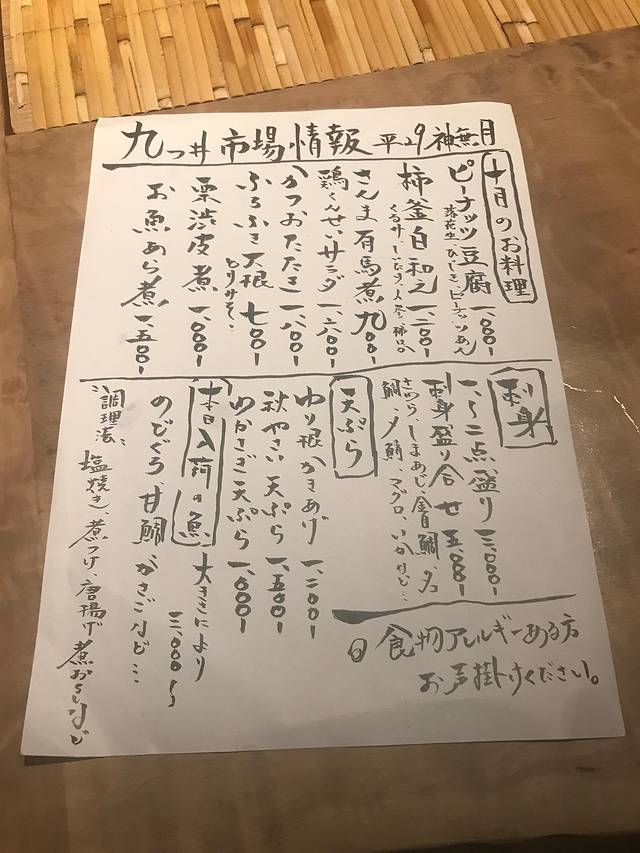 九つ井 市場情報 平29 神無月
十月のお料理
ピーナッツ豆腐 一、〇〇〇ー
落花生、ひじき、ピーナッツあん
柿釜白和え 一、二〇〇ー
くるみ、しいたけ、人参、柿の
さんま有馬煮 九〇〇ー
鶏くんせいサラダ 一、二六〇〇ー
かつおたたき 一、八〇〇ー
ふろふき大根 七〇〇ー
とりみそ
栗渋皮煮 一、〇〇〇ー
お魚あら煮 一、五〇〇ー
刺身
一〜二点盛り 三、〇〇〇ー
刺身盛り合せ 五、〇〇〇ー
しまあじ、金目鯛、タコ
鯛、〆鯖、マグロ、いかなど…
天ぷら
ゆり根かきあげ 一、二〇〇ー
秋やさい天ぷら 一、五〇〇ー
わかさぎ天ぷら 一、〇〇〇ー
本日入荷の魚
大きさにより
三、〇〇〇〜
のどぐろ、甘鯛、かさごなど…
調理法
塩焼き、煮つけ、唐揚げ 煮おろしなど
◎食物アレルギーある方
お声掛けください。